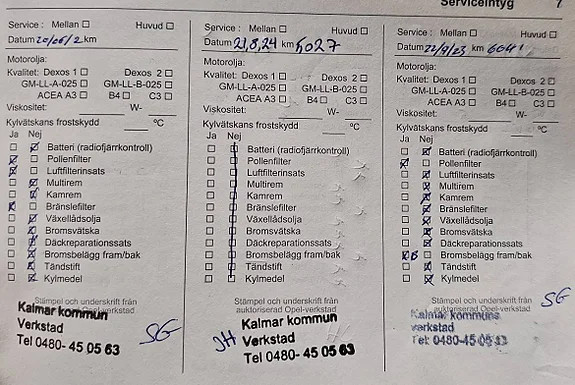 Serviceintyg 7
Service : Mellan ☐ Huvud ☐
Datum 20/06/2 km
Motorolja:
Kvalitet: Dexos 1 ☐ Dexos 2 ☐
GM-LL-A-025 ☐ GM-LL-B-025 ☐
ACEA A3 ☐ B4 ☐ C3 ☐
Viskositet: W-
Kylvätskans frostskydd °C
Ja Nej
Batteri (radiofjärrkontroll)
Pollenfilter
Luftfilterinsats
Multirem
Kamrem
Bränslefilter
Växellådsolja
Bromsvätska
Däckreparationssats
Bromsbelägg fram/bak
Tändstift
Kylmedel
Stämpel och underskrift från
auktoriserad Opel-verkstad
Kalmar kommun
Verkstad
Tel 0480- 45 05 63
SG
Service : Mellan ☐ Huvud ☐
Datum 21,8,24 km 5027
Motorolja:
Kvalitet: Dexos 1 ☐ Dexos 2 ☐
GM-LL-A-025 ☐ GM-LL-B-025 ☐
ACEA A3 ☐ B4 ☐ C3 ☐
Viskositet: W-
Kylvätskans frostskydd °C
Ja Nej
Batteri (radiofjärrkontroll)
Pollenfilter
Luftfilterinsats
Multirem
Kamrem
Bränslefilter
Växellådsolja
Bromsvätska
Däckreparationssats
Bromsbelägg fram/bak
Tändstift
Kylmedel
Stämpel och underskrift från
auktoriserad Opel-verkstad
Kalmar kommun
JH Verkstad
Tel 0480- 45 05 63
Service : Mellan ☐ Huvud ☐
Datum 22/9/23 km 6041
Motorolja:
Kvalitet: Dexos 1 ☐ Dexos 2 ☐
GM-LL-A-025 ☐ GM-LL-B-025 ☐
ACEA A3 ☐ B4 ☐ C3 ☐
Viskositet: W-
Kylvätskans frostskydd °C
Ja Nej
Batteri (radiofjärrkontroll)
Pollenfilter
Luftfilterinsats
Multirem
Kamrem
Bränslefilter
Växellådsolja
Bromsvätska
Däckreparationssats
Bromsbelägg fram/bak
Tändstift
Kylmedel
Stämpel och underskrift från
auktoriserad Opel-verkstad
Kalmar kommuns
verkstad
Tel: 0480-45 05 63
SG